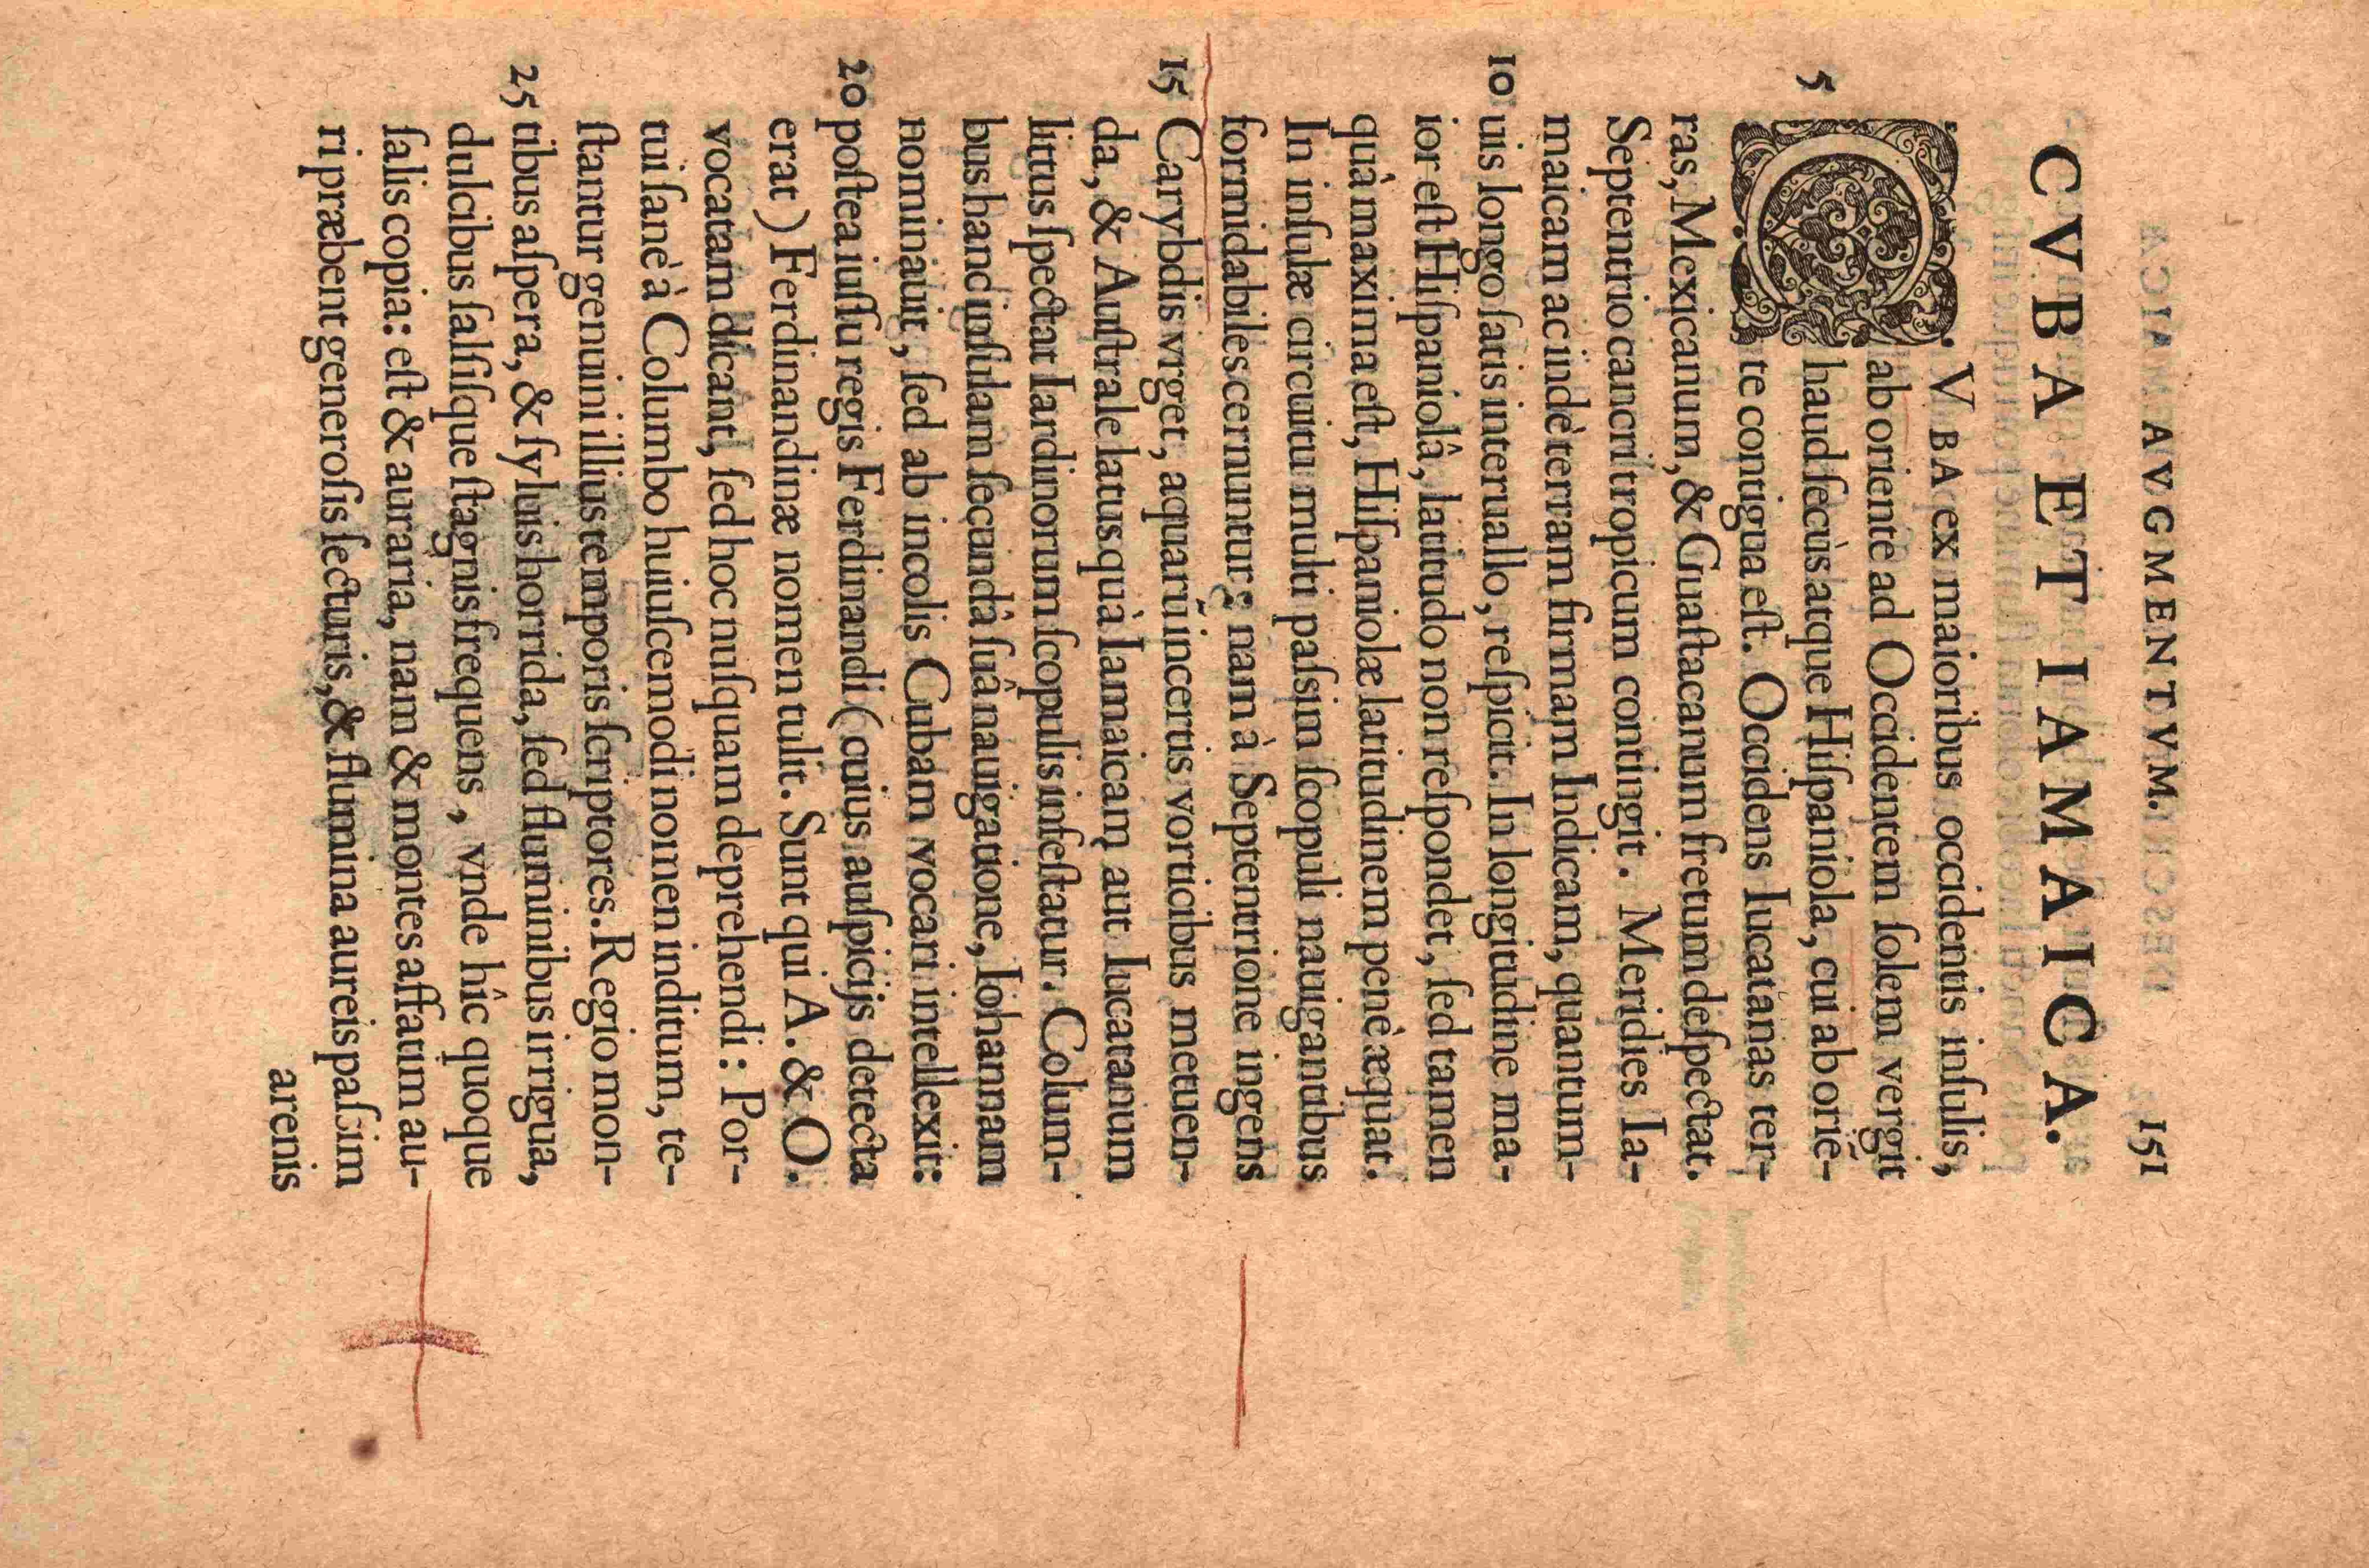 AVGMENTVM. 151
CVBA ET IAMAICA.
CVBA ex maioribus occidentis inſulis,
ab oriente ad Occidentem ſolem vergit
5 haud ſecùs atque Hiſpaniola, cui ab oriē-
te contigua eſt. Occidens Iucatanas ter-
ras, Mexicanum, & Guaſtacanum fretum deſpectat.
Septentrio cancri tropicum contingit. Meridies Ia-
maicam ac indè terram firmam Indicam, quantum-
10 uis longo ſatis interuallo, reſpicit. In longitudine ma-
ior eſt Hiſpaniolâ, latitudo non reſpondet, ſed tamen
quà maxima eſt, Hiſpaniolæ latitudinem penè æquat.
In inſulæ circuitu multi paſsim ſcopuli nauigantibus
formidabiles cernuntur; nam à Septentrione ingens
15 Carybdis vrget, aquarū incertis vorticibus metuen-
da, & Auſtrale latus quà Iamaicam aut Iucatanum
littus ſpectat Iardinorum ſcopulis infeſtatur. Colum-
bus hanc inſulam ſecundâ ſuâ nauigatione, Iohannam
nominauit, ſed ab incolis Cubam vocari intellexit:
20 poſtea iuſſu regis Ferdinandi (cuius auſpicijs detecta
erat) Ferdinandinæ nomen tulit. Sunt qui A. & O.
vocatam dicant, ſed hoc nuſquam deprehendi: Por-
tui ſanè à Columbo huiuſcemodi nomen inditum, te-
ſtantur genuini illius temporis ſcriptores. Regio mon-
25 tibus aſpera, & ſyluis horrida, ſed fluminibus irrigua,
dulcibus ſalſiſque ſtagnis frequens, vnde hîc quoque
ſalis copia: eſt & auraria, nam & montes affatim au-
ri præbent generoſis ſecturis, & flumina aureis paſsim
arenis